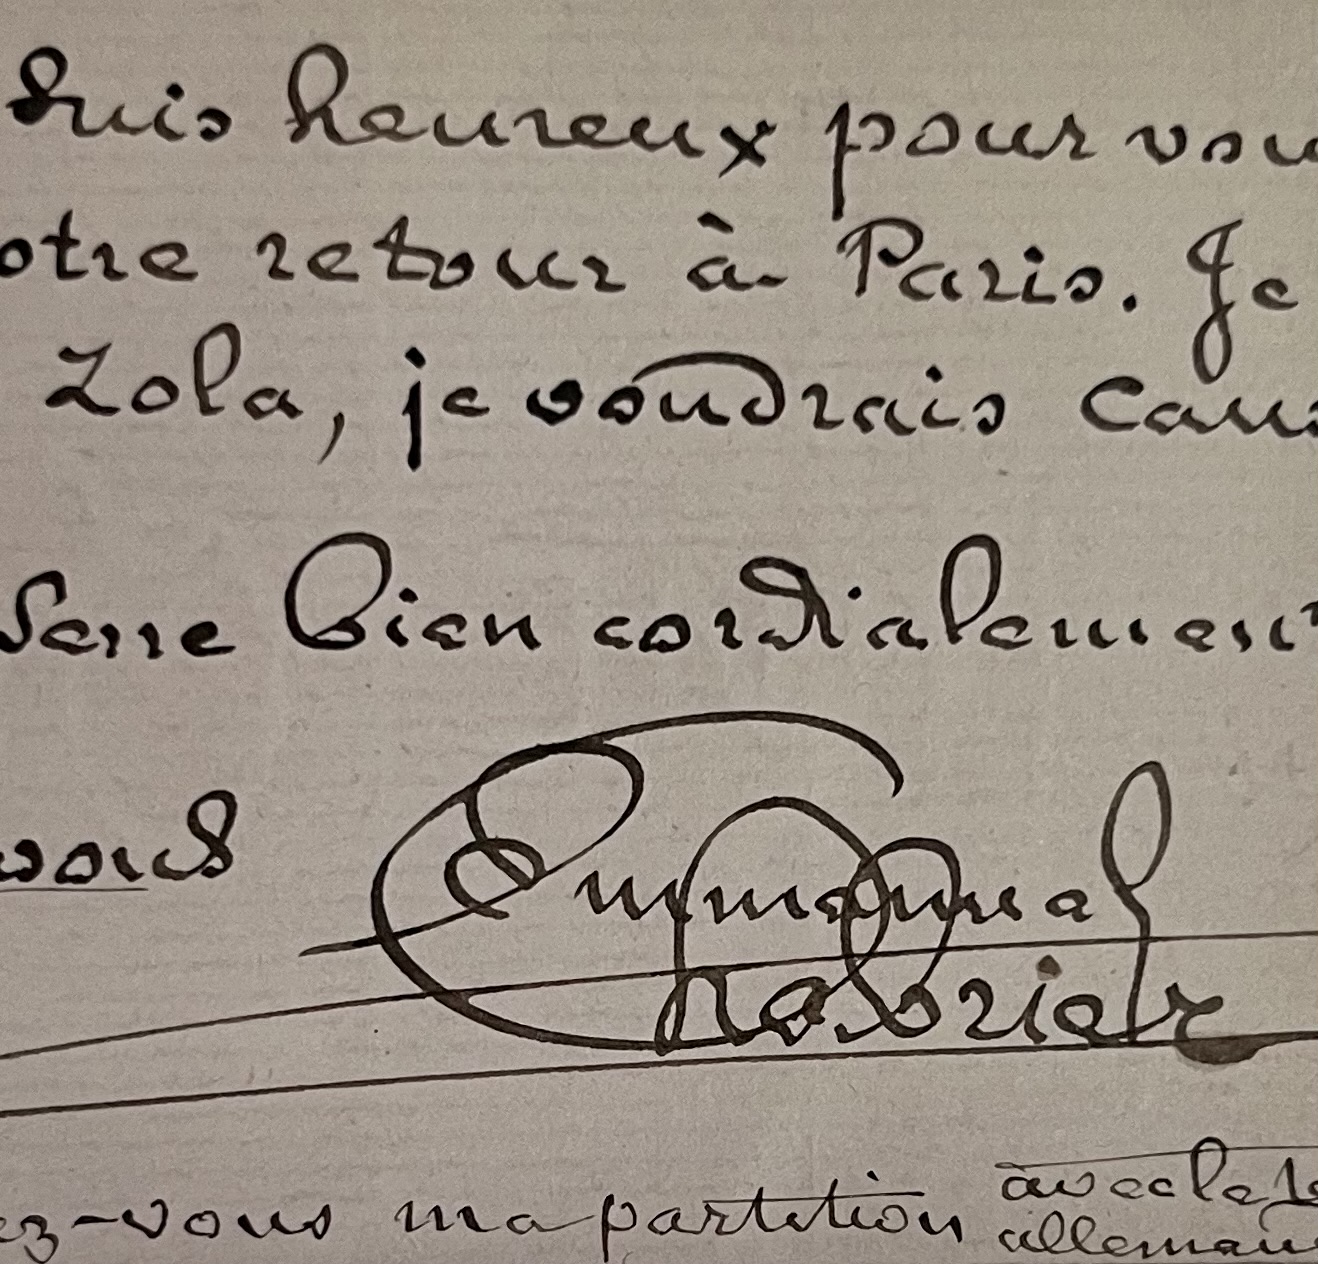 suis heureux pour vou
otre retour à Paris. Je
Zola, je voudrais caus
serre bien cordialement
vous
Emmanuel
Chabrier
ez-vous ma partition avec le te
allemand